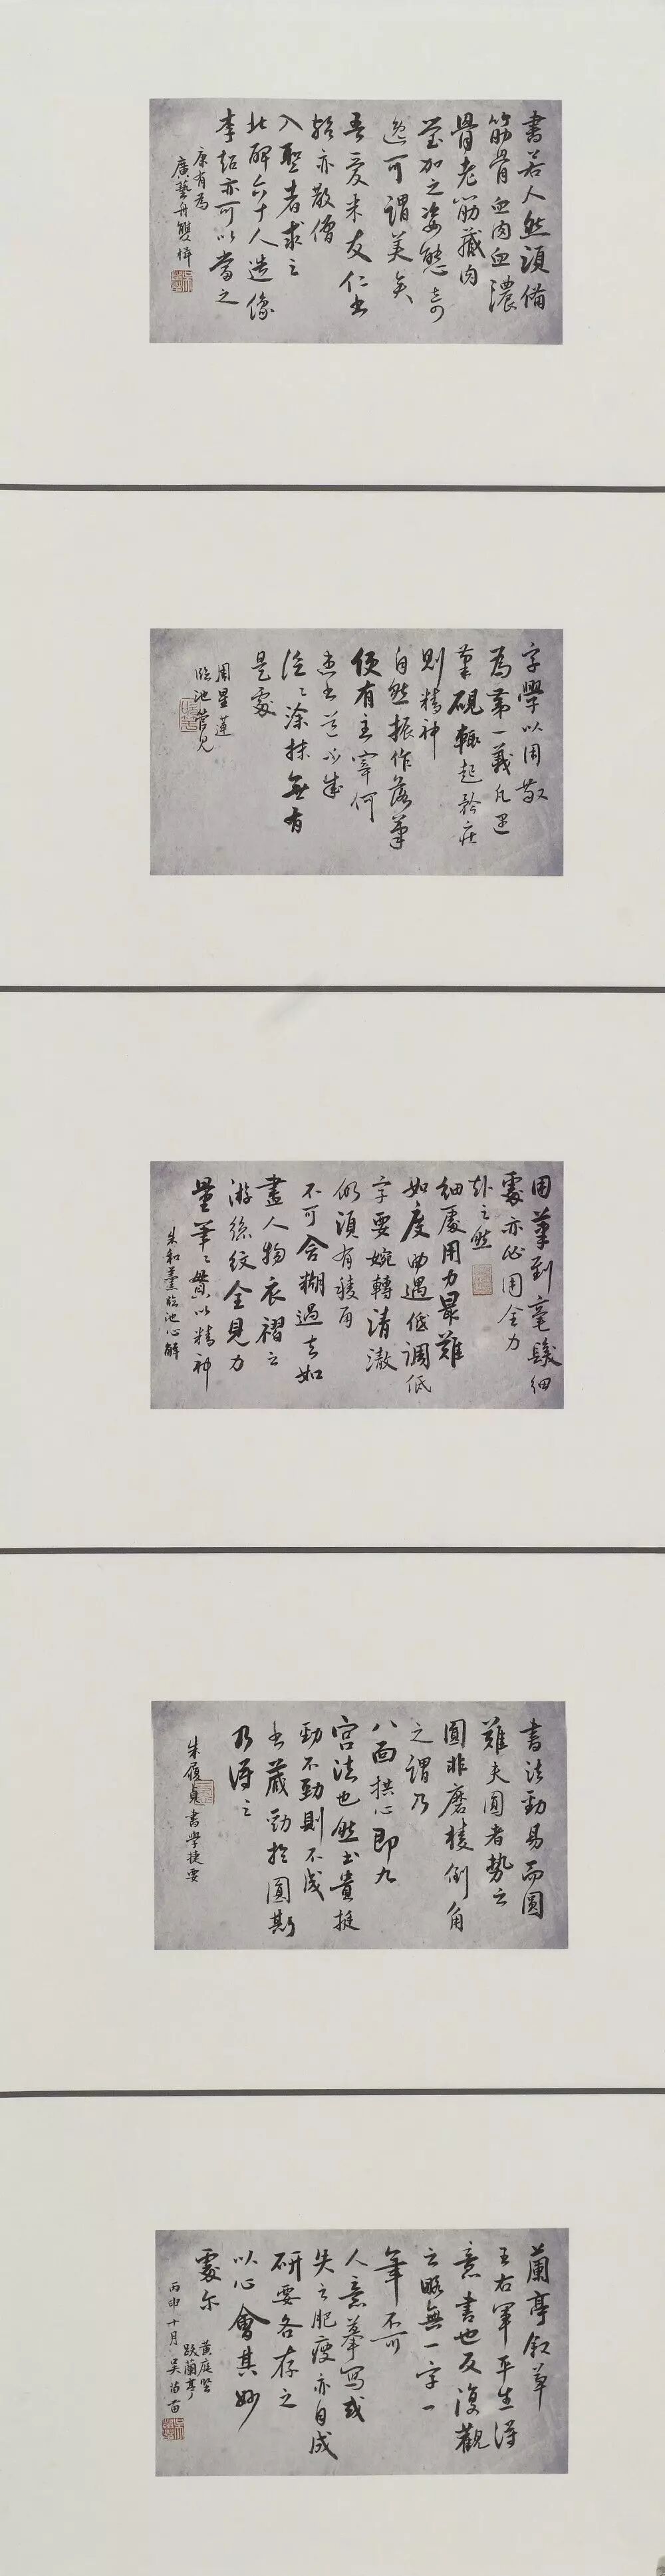 書若人然須備
筋骨血肉血濃
骨老筋藏肉
瑩加之姿態奇
逸可謂美矣
吾愛米友仁書
殆亦散僧
入聖者求之
北碑六十人造像
李超亦可以當之
康有為
廣藝舟雙楫
字學以用敬
為第一義凡遇
筆硯輒起矜莊
則精神
自然振作落筆
便有主宰何
患書道不成
泛泛涂抹無有
是處
周星蓮
臨池管見
用筆到毫髮細
處亦必用全力
赴之然
細處用力最難
如度曲遇低調低
字要婉轉清澈
仍須有稜角
不可含糊過去如
畫人物衣褶之
游絲紋全見力
量筆筆貫以精神
朱和羹臨池心解
書法勁易而圓
難夫圓者勢之
圓非磨棱倒角
之謂乃
八面拱心即九
宮法也然書貴挺
勁不勁則不成
書藏勁於圓斯
乃得之
朱履貞書學捷要
蘭亭敘草
王右軍平生得
意書也反復觀
之略無一字一
筆不可
人意摹寫或
失之肥瘦亦自成
研要各存之
以心會其妙
處尔
黃庭堅
跋蘭亭
丙申十月吳苗苗